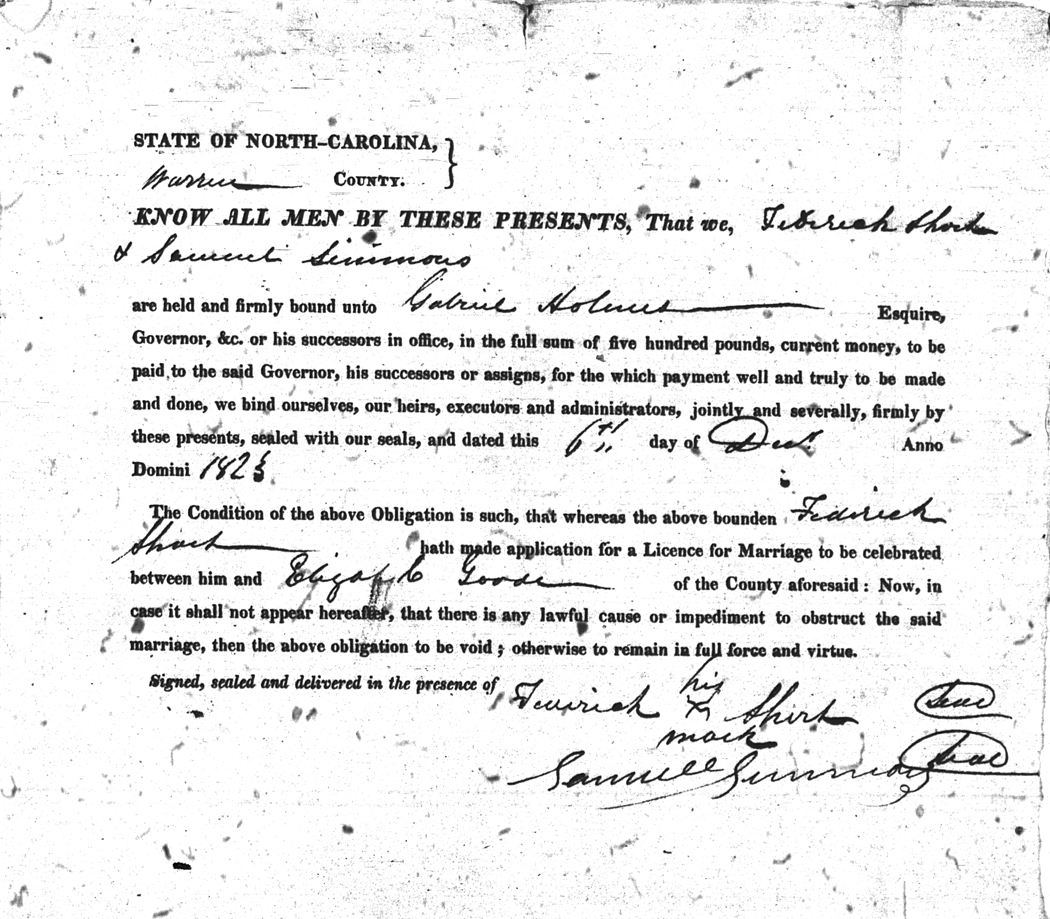 STATE OF NORTH-CAROLINA, }
Warren COUNTY.
KNOW ALL MEN BY THESE PRESENTS, That we, Federick Short
& Samuel Simmons
are held and firmly bound unto Gabriel Holmes Esquire,
Governor, &c. or his successors in office, in the full sum of five hundred pounds, current money, to be
paid to the said Governor, his successors or assigns, for the which payment well and truly to be made
and done, we bind ourselves, our heirs, executors and administrators, jointly and severally, firmly by
these presents, sealed with our seals, and dated this 6th day of Decr. Anno
Domini 1823
The Condition of the above Obligation is such, that whereas the above bounden Federick
Short hath made application for a Licence for Marriage to be celebrated
between him and Goode of the County aforesaid : Now, in
case it shall not appear hereafter, that there is any lawful cause or impediment to obstruct the said
marriage, then the above obligation to be void ; otherwise to remain in full force and virtue.
Signed, sealed and delivered in the presence of
his
Federick X Short Seal
mark
Samuell Simmons Seal